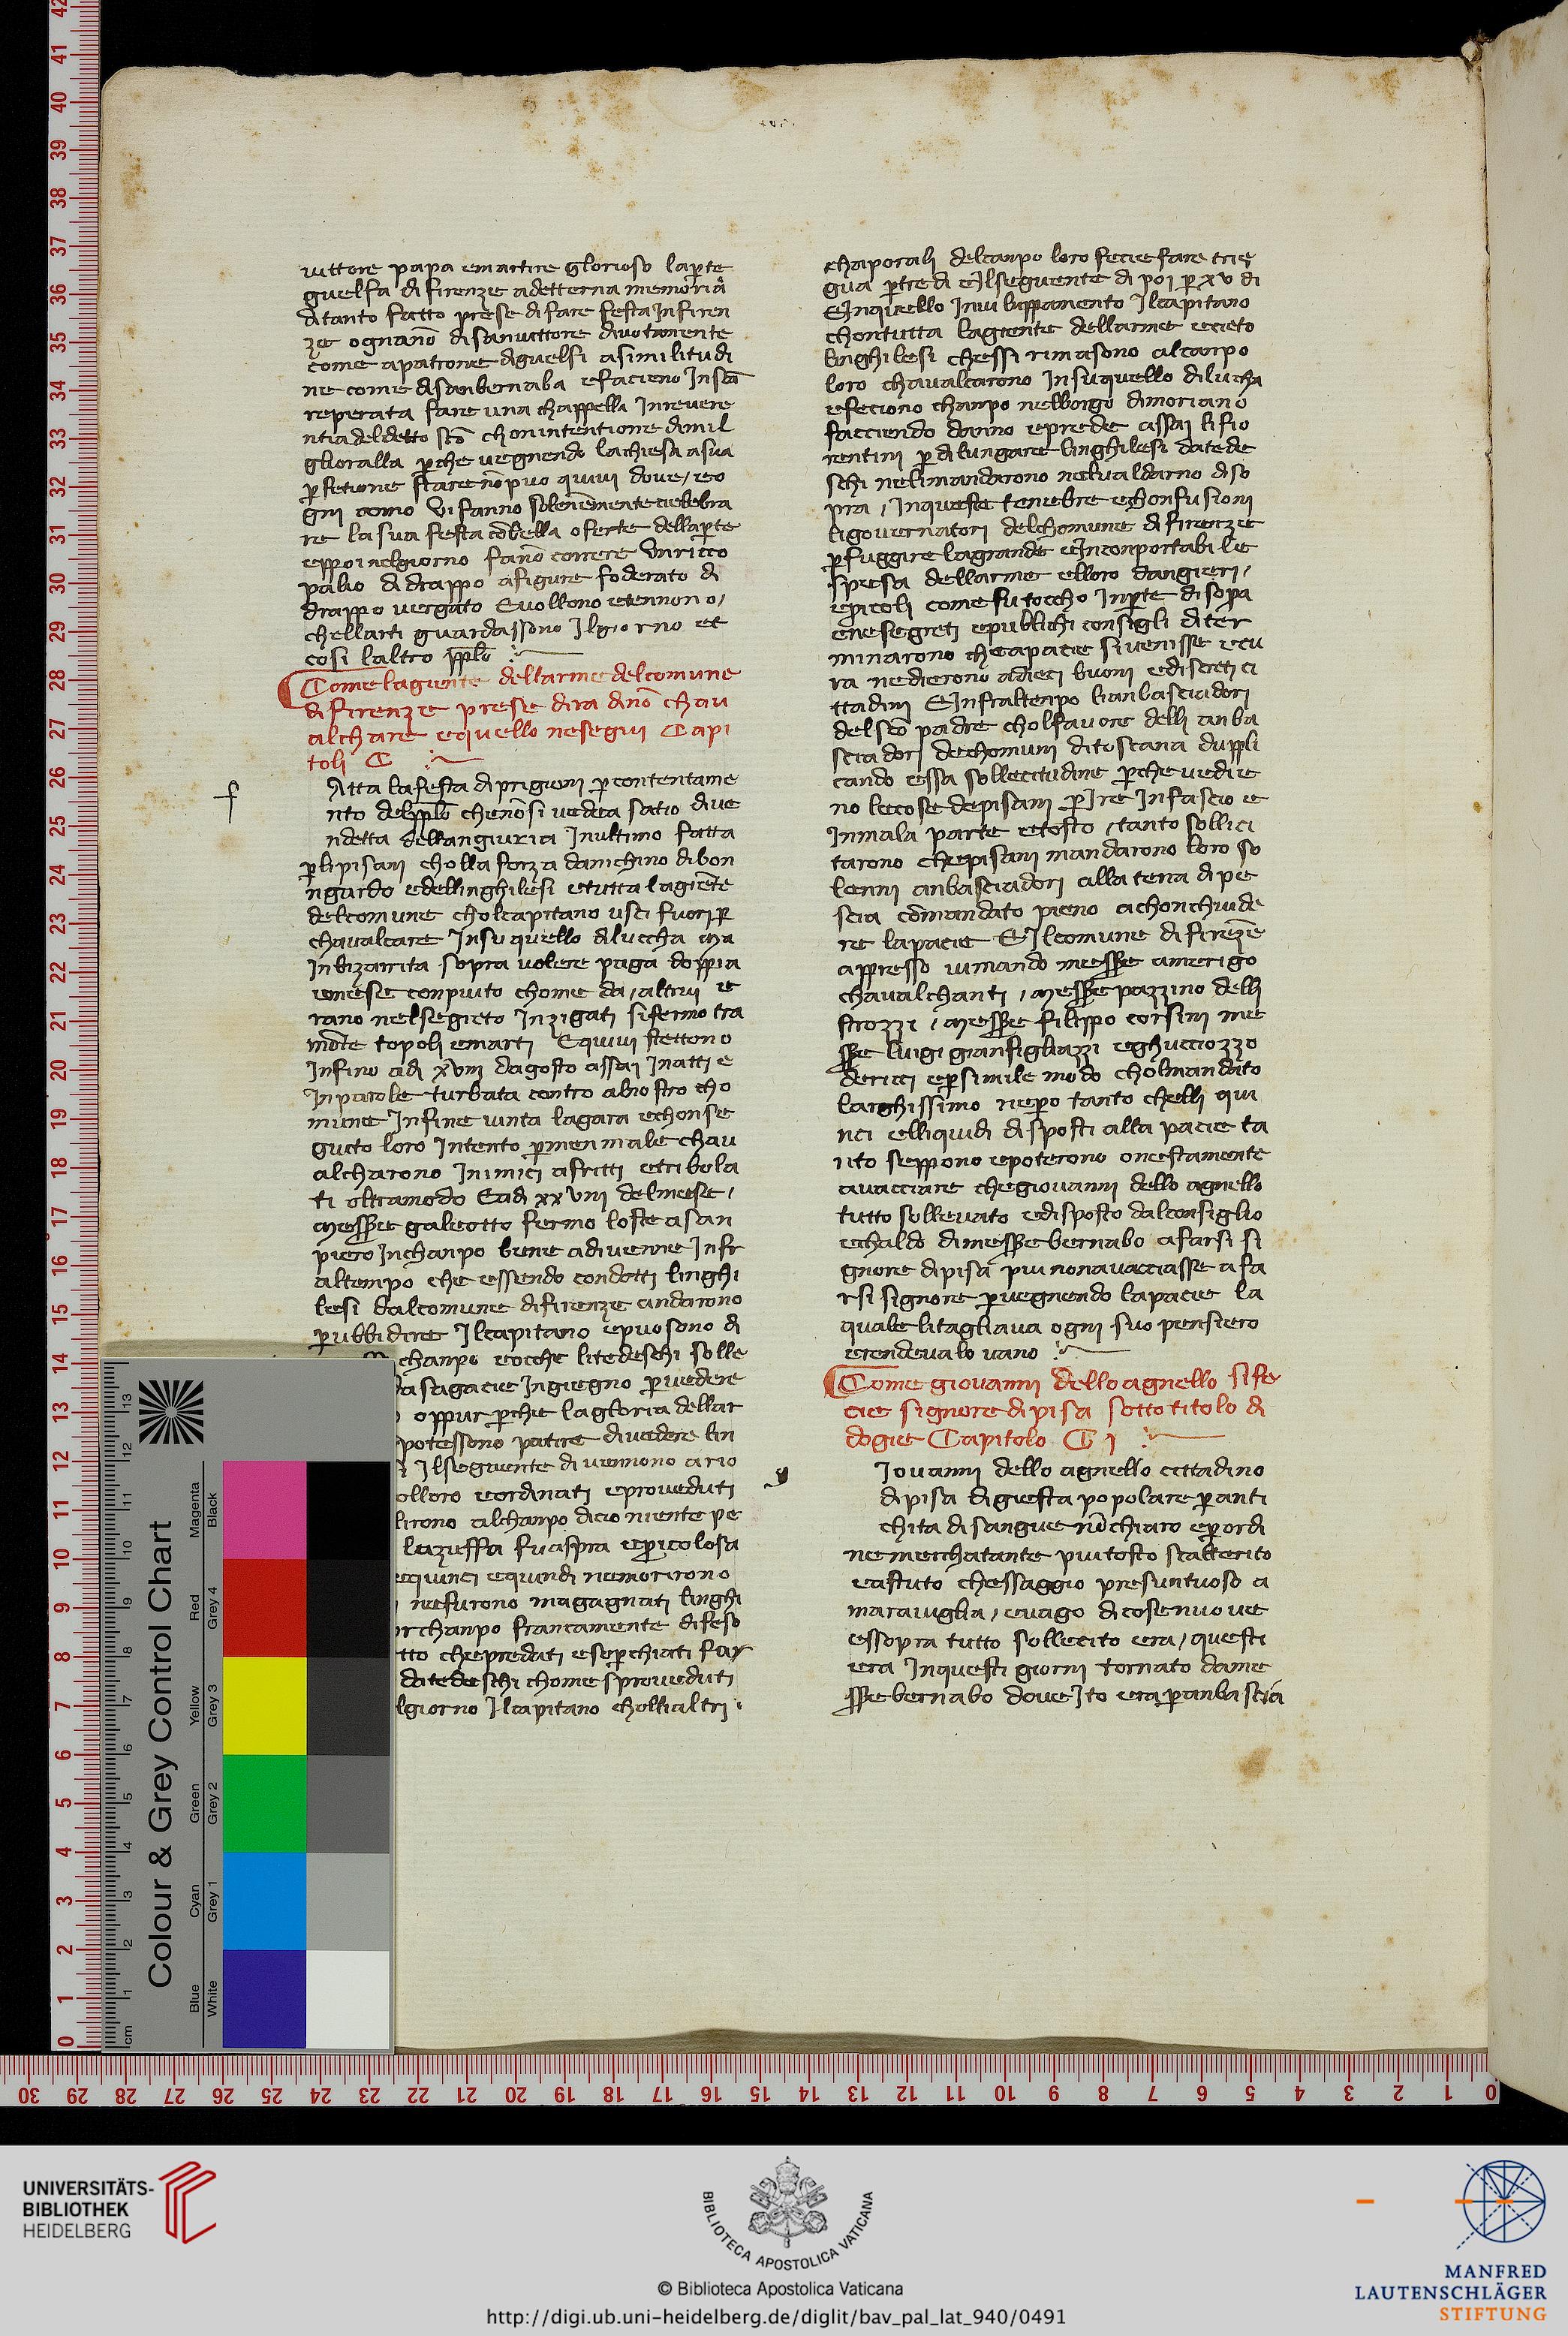 vittore papa emartire glorioso laparte
guelfa di firenze adetterna memoria
ditanto fatto prese difare festa Infiren
ze ognano disanvittore divotamente
come apatrone diguelfi asimilitudi
ne come disanbernaba efacieno Insca
reperata fare una chappella Inrevere
ntia deldetto sco chonintentione dimil
glioralla perche vegnendo lachiesa asua
perfetione stare no puo quivi dove / eo
gni anno vi fanno solenemente cielebra
re lasua festa cobella oferte dellaparte
eppoi nelgiorno fano correre Unricco
palio di drappo afigure foderato di
drappo vergato Evollono etennono /
chellarti guardassono Ilgiorno et
cosi laltro pplo
Come lagiente dellarme delcomune
difirenze prese dira dino chav
alchare equello nesegui Capi
toli C
f
Atta lafesta diprigioni per contentame
nto delpplo chenosi vedea satio dive
ndetta dellangiuria Inultimo fatta
perlipisani cholla forza danichino dibon
ngardo edellinghilesi etutta lagiete
delcomune cholcapitano usci fuori per
chavalcare Insuquello diluccha Ma
Inbizarrita sopra volere paga doppia
emese conpiuto chome da / altrui e
rano nelsegreto Inzigati sifermo tra
mote topoli emarti Equivi stettono
Infino adi xviii dagosto assai Inatti e
Inparole turbata contro alnostro cho
mune Infine vinta lagara echonse
guito loro Intento permen male chav
alcharono Inimici afritti etribola
ti oltramodo Eadi xxviiii delmese /
Messer galeotto fermo loste asan
piero Inchanpo bene adivenne Infr
altempo che essendo condotti linghi
lesi dalcomune difirenze andarono
perubbidire Ilcapitano epuosono di
chanpo eocche litedeschi solle
sagacie Ingiegno pervedere
oppur perche lagloria dellar
potessono patire divedere lin
Ilseguente divennono ario
olloro eordinati eproveduti
lirono alchanpo dicio niente pe
lazuffa fuaspra epericolosa
equinci equindi nemorirono
nefurono magagnati linghi
chanpo francamente difeso
tto chepredati esoperchiati fur
datedeschi chome sproveduti
lgiorno Ilcapitano cholli altri
chaporali delcanpo loro fecie fare trie
gua pertredi eIlseguente di poi per xv di
EInquello Inviluppamento Ilcapitano
chontutta lagiente dellarme ecieto
linghilesi chessi rimasono alcanpo
loro chavalcarono Insuquello dilucha
efeciono chanpo nelborgo dimoriano
facciendo danno eprede assai lifio
rentini per dilungare linghilesi datede
schi nelimandarono nelvaldarno diso
pra / Inqueste tenebre echonfusioni
ligovernatori delchomune difirenze
perfuggire lagrande eInconportabile
spesa dellarme elloro dangieri /
epericoli come fu toccho Inparte disopra
enesegreti epublichi consigli diter
minarono chelapacie sivenisse ecu
ra nedierono adieci buoni ediscreti ci
ttadini EInfraltenpo lianbasciadori
delsco padre cholfavore delli anba
sciadori dechomuni ditoscana duppli
cando essa sollecitudine perche vedie
no lecose depisani per Ire Infascio e
Inmala parte etosto / tanto sollici
tarono chepisani mandarono loro so
lenni anbasciadori alla terra dipe
scia comandato pieno achonchiude
re lapacie EIlcomune difireze
appresso vimando messer amerigo
chavalchanti / Messer pazzino delli
strozzi / Messer filippo corsini me
sser luigi gianfigliazzi eghucciozzo
dericci epersimile modo cholmandato
larghissimo nepero tanto chelli qui
nci elliquidi disposti alla pacie ta
nto seppono epoterono onestamente
avacciare chegiovanni dello agnello
tutto sollevato edisposto dalconsiglio
echaldo dimesser bernabo afarsi si
gnore dipisa piu nonavacciasse afa
rsi signore pervegnendo lapacie la
quale litagliava ogni suo pensiero
erendevalo vano
Come giovanni dello agnello sife
cie signore dipisa sotto titolo di
dogie Capitolo CI
g
Iovanni dello agnello cittadino
dipisa digiesta popolare peranti
chita disangue no chiaro eperordi
ne merchatante piutosto scalterito
eastuto chessaggio presuntuoso a
maraviglia / evago dicose nuove
essopra tutto sollecito era / questi
era Inquesti giorni tornato dame
sser bernabo doveIto era peranbascia
UNIVERSITÄTS-
BIBLIOTHEK
HEIDELBERG
BIBLIOTECA APOSTOLICA VATICANA
© Biblioteca Apostolica Vaticana
http://digi.ub.uni-heidelberg.de/diglit/bav_pal_lat_940/0491
MANFRED
LAUTENSCHLÄGER
STIFTUNG
Colour & Grey Control Chart
Blue Cyan Green Yellow Red Magenta
White Grey 1 Grey 2 Grey 3 Grey 4 Black